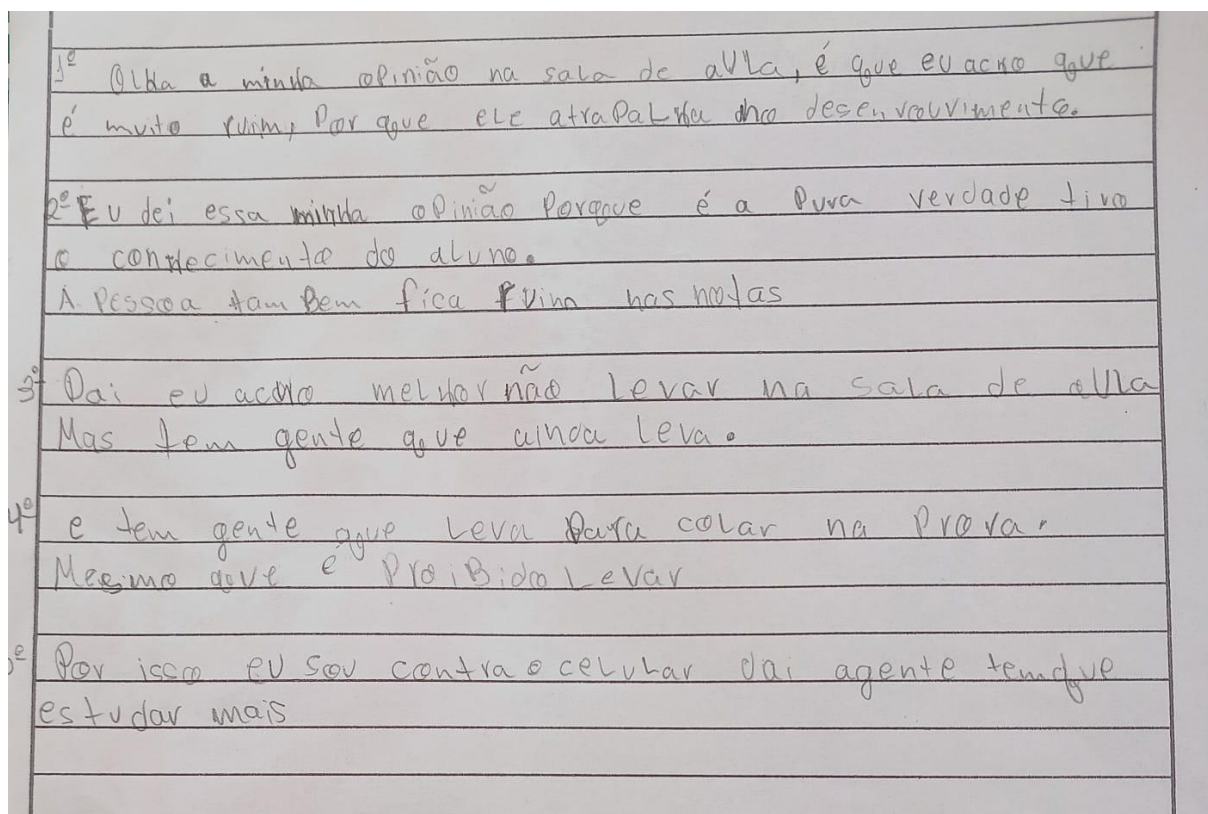 1º Olha a minha opinião na sala de aula, é que eu acho que
é muito ruim, Por que ele atraPalha no desenvouvimento.
2º Eu dei essa minha oPinião Porque é a Pura verdade tira
o conhecimento do aluno.
A Pessoa tam Bem fica ruim nas notas
3º Dai eu acho melhor não Levar na sala de aula
Mas tem gente que ainda Leva.
4º e tem gente que Leva Para colar na Prova.
Mesmo que é ProiBido Levar
Por isso eu sou contra o ceLuLar dai agente tem que
estudar mais